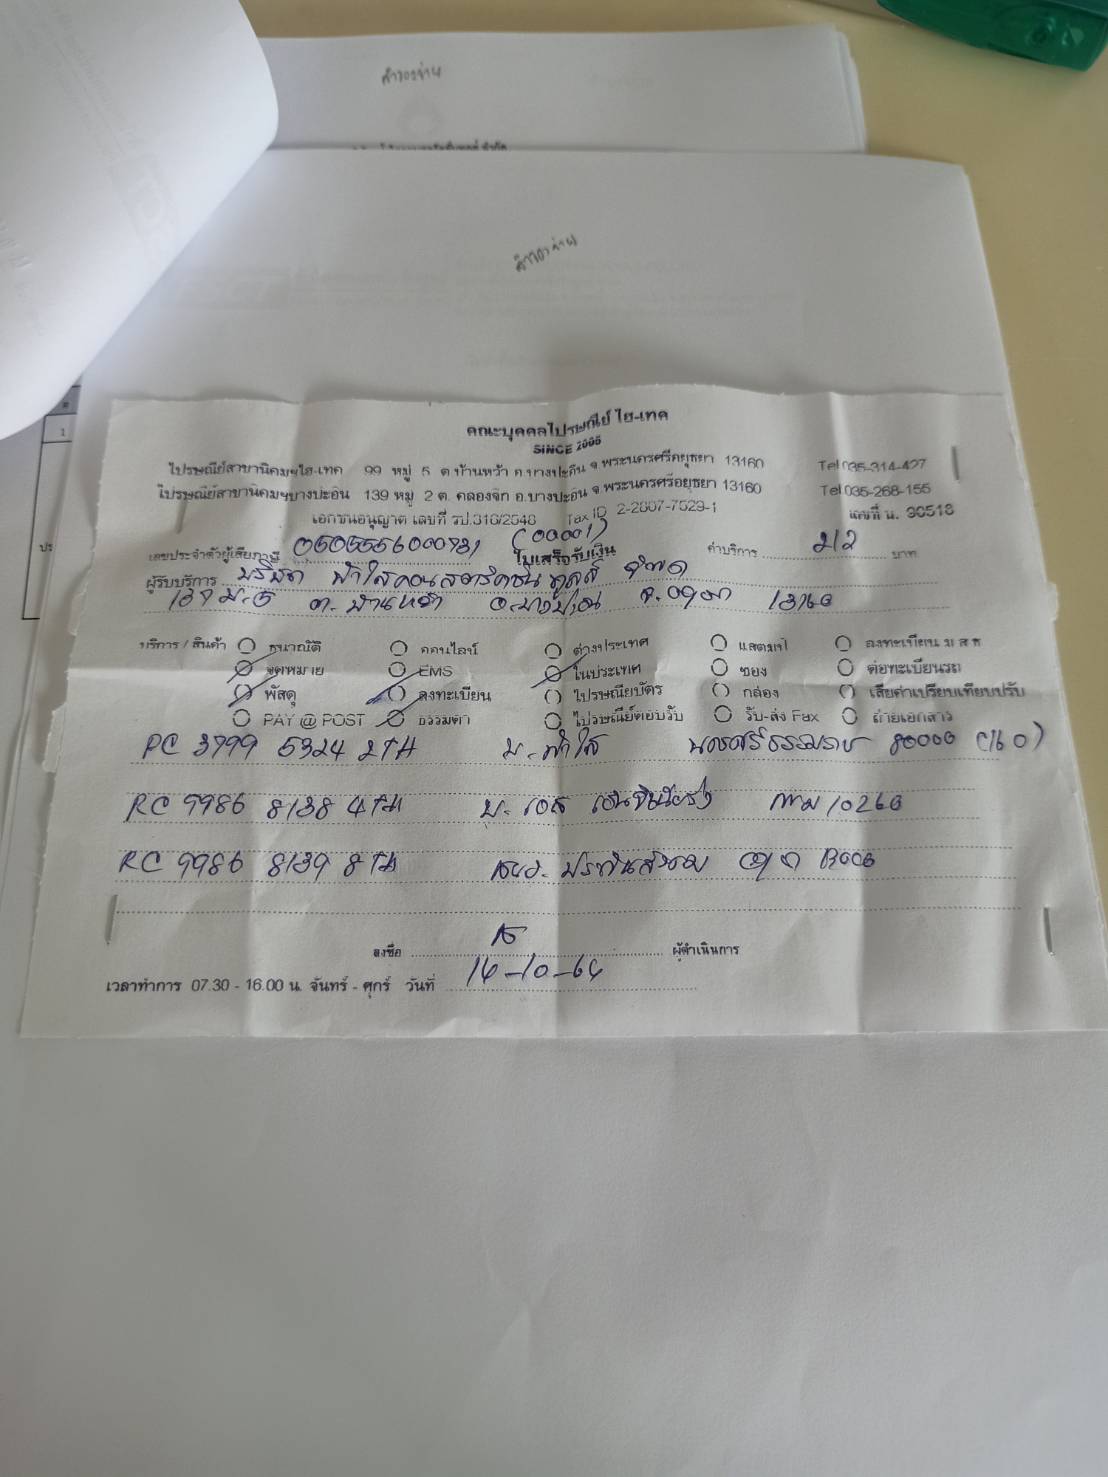 สำรองจ่าย
สำรองจ่าย
1
คณะบุคคลไปรษณีย์ ไฮ-เทค
SINCE 2005
ไปรษณีย์สาขานิคมฯไฮ-เทค 99 หมู่ 5 ต.บ้านหว้า อ.บางปะอิน จ.พระนครศรีอยุธยา 13160 Tel 035-314-427
ไปรษณีย์สาขานิคมฯบางปะอิน 139 หมู่ 2 ต. คลองจิก อ.บางปะอิน จ.พระนครศรีอยุธยา 13160 Tel.035-268-155
เอกชนอนุญาต เลขที่ รป.316/2548 Tax ID 2-2807-7529-1 เลขที่ น. 30518
เลขประจำตัวผู้เสียภาษี 0505556000731 (00001) ใบเสร็จรับเงิน ค่าบริการ 212 บาท
ผู้รับบริการ บริษัท ฟ้าใสคอนสตรัคชั่น ทูลส์ จำกัด
139 ม.5 ต. บ้านหว้า อ.บางปะอิน จ.อยุธยา 13160
บริการ / สินค้า ธนาณัติ ออนไลน์ ต่างประเทศ แสตมป์ ลงทะเบียน ม ส ท
จดหมาย EMS ในประเทศ ซอง ต่อทะเบียนรถ
พัสดุ ลงทะเบียน ไปรษณียบัตร กล่อง เสียค่าเปรียบเทียบปรับ
PAY @ POST ธรรมดา ไปรษณีย์ตอบรับ รับ-ส่ง Fax ถ่ายเอกสาร
PC 3799 5324 2TH บ. ฟ้าใส นครศรีธรรมราช 80000 (160)
RC 9986 8138 4TH บ. เอส กทม 10260
RC 9986 8139 8TH สนง. ประกันสังคม อยุธยา 13000
ลงชื่อ ผู้ดำเนินการ
เวลาทำการ 07.30 - 16.00 น. จันทร์ - ศุกร์ วันที่ 14-10-64